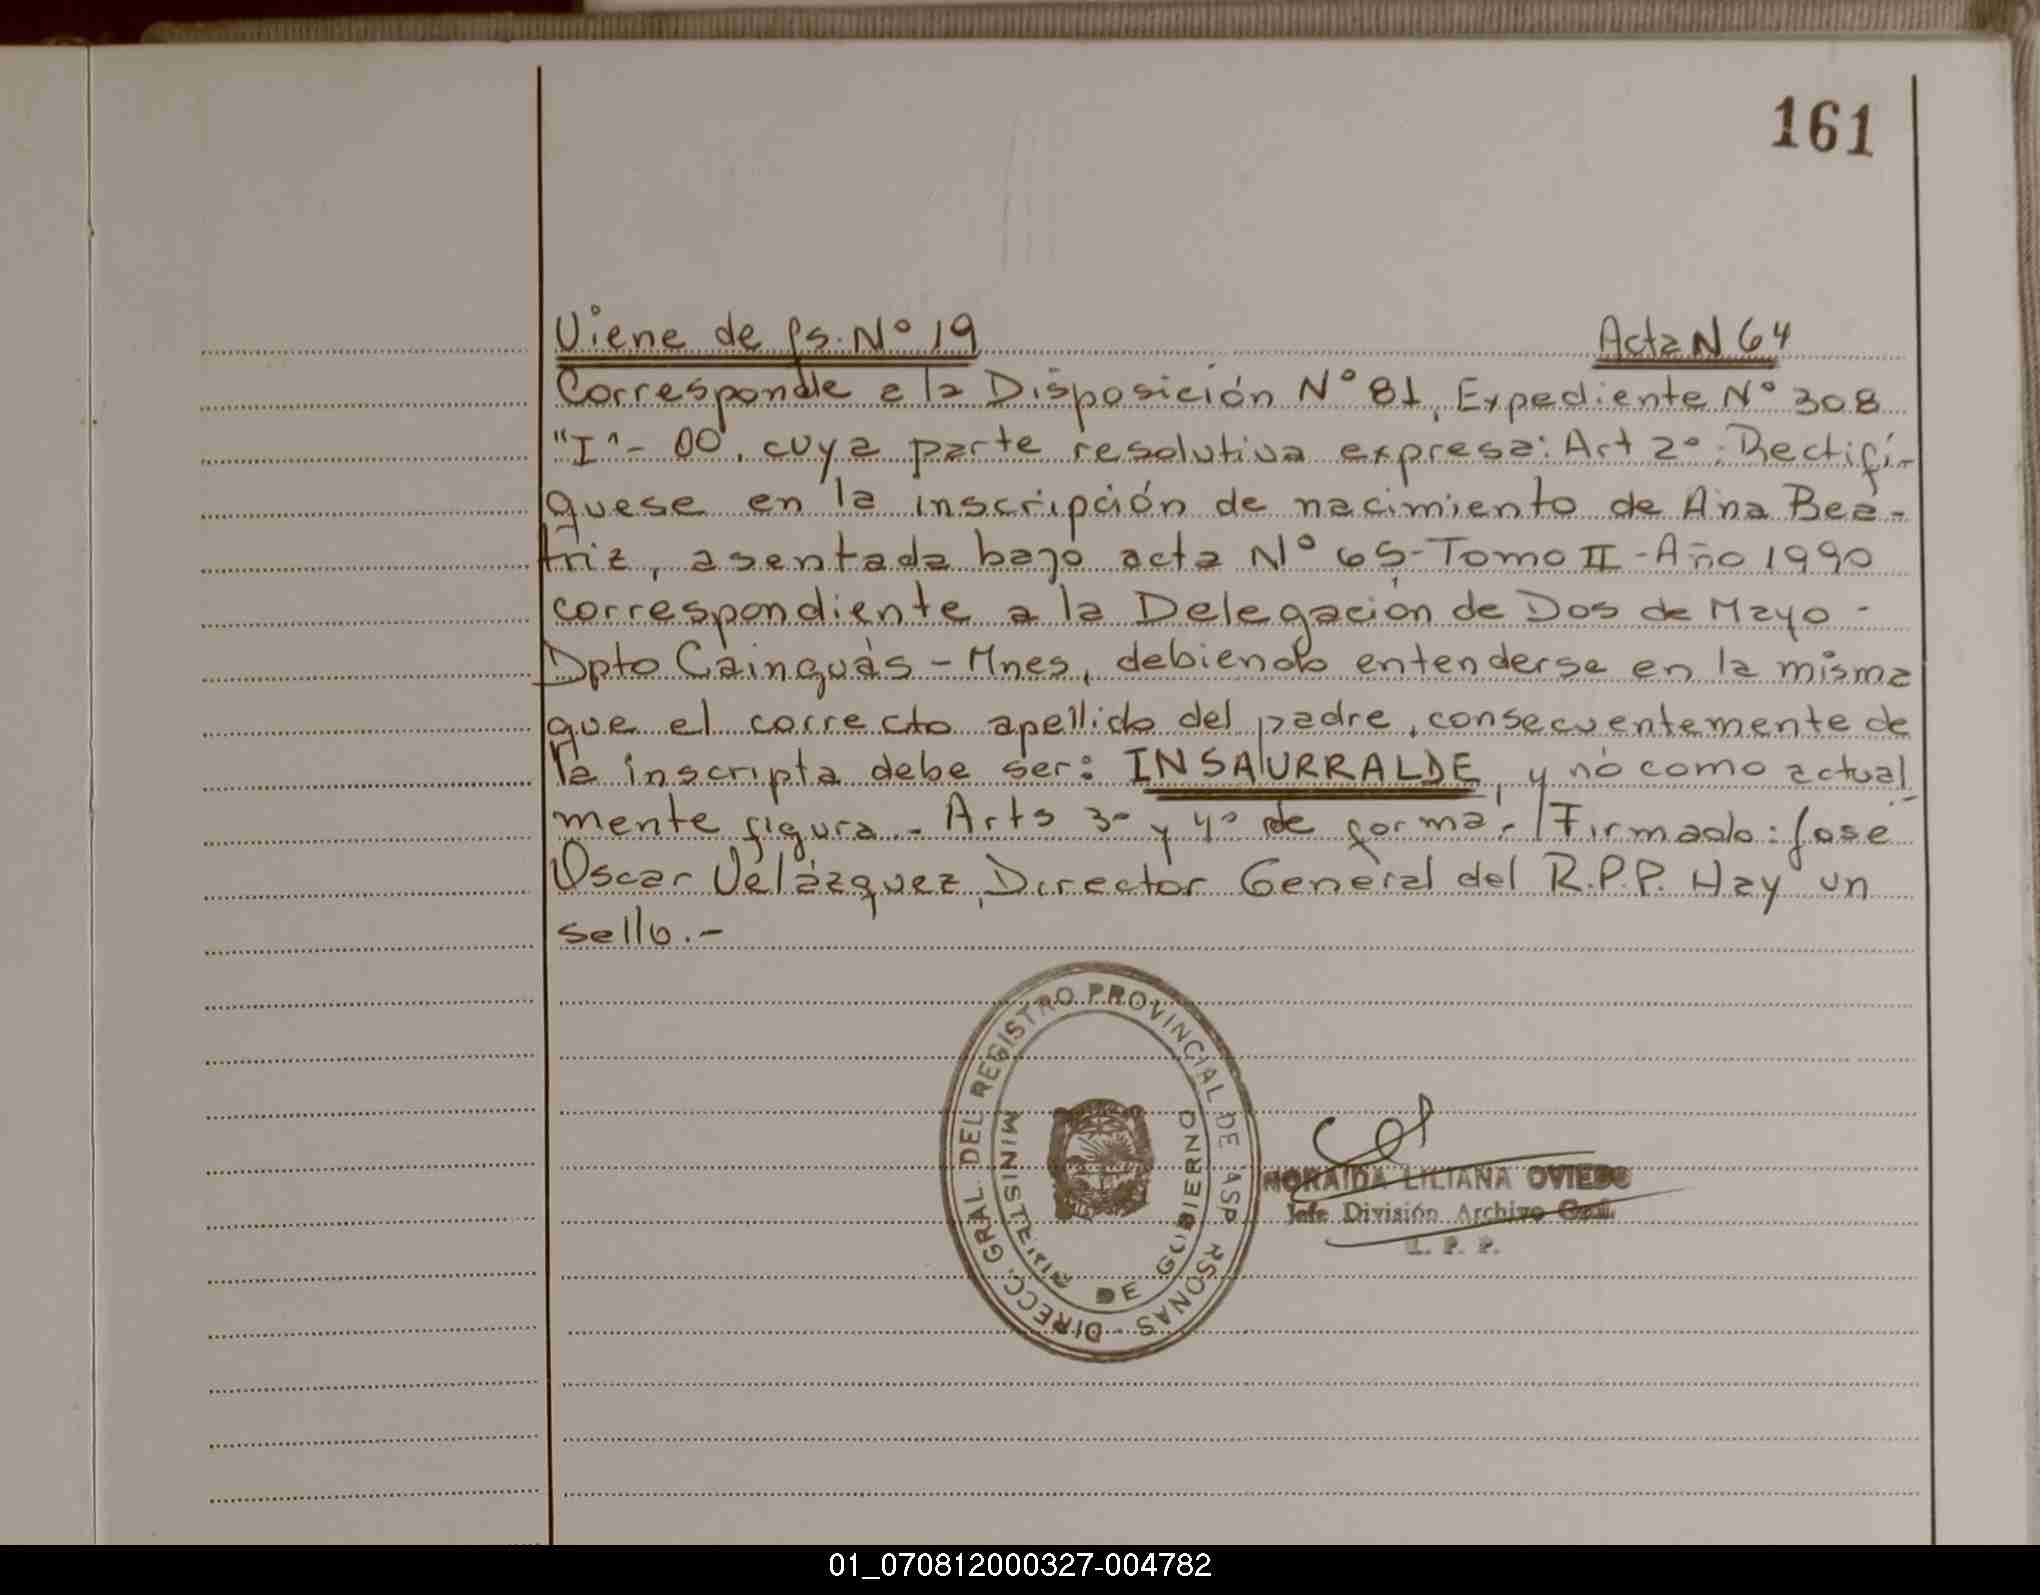 161
Viene de fs. Nº 19 Acta N 64
Corresponde a la Disposición Nº 81, Expediente Nº 308
"I"- 00, cuya parte resolutiva expresa: Art 2º: Rectifí-
quese en la inscripción de nacimiento de Ana Bea-
triz, asentada bajo acta Nº 65-Tomo II-Año 1990
correspondiente a la Delegación de Dos de Mayo -
Dpto Cainguás - Mnes, debiendo entenderse en la misma
que el correcto apellido del padre, consecuentemente de
la inscripta debe ser: INSAURRALDE, y no como actual
mente figura.- Arts 3º y 4º de forma.- Firmado: José
Oscar Velázquez, Director General del R.P.P. Hay un
sello.-
DIRECC. GRAL. DEL REGISTRO PROVINCIAL DE
MINISTERIO DE GOBIERNO
LILIANA OVIEDO
Jefe División Archivo
01_070812000327-004782